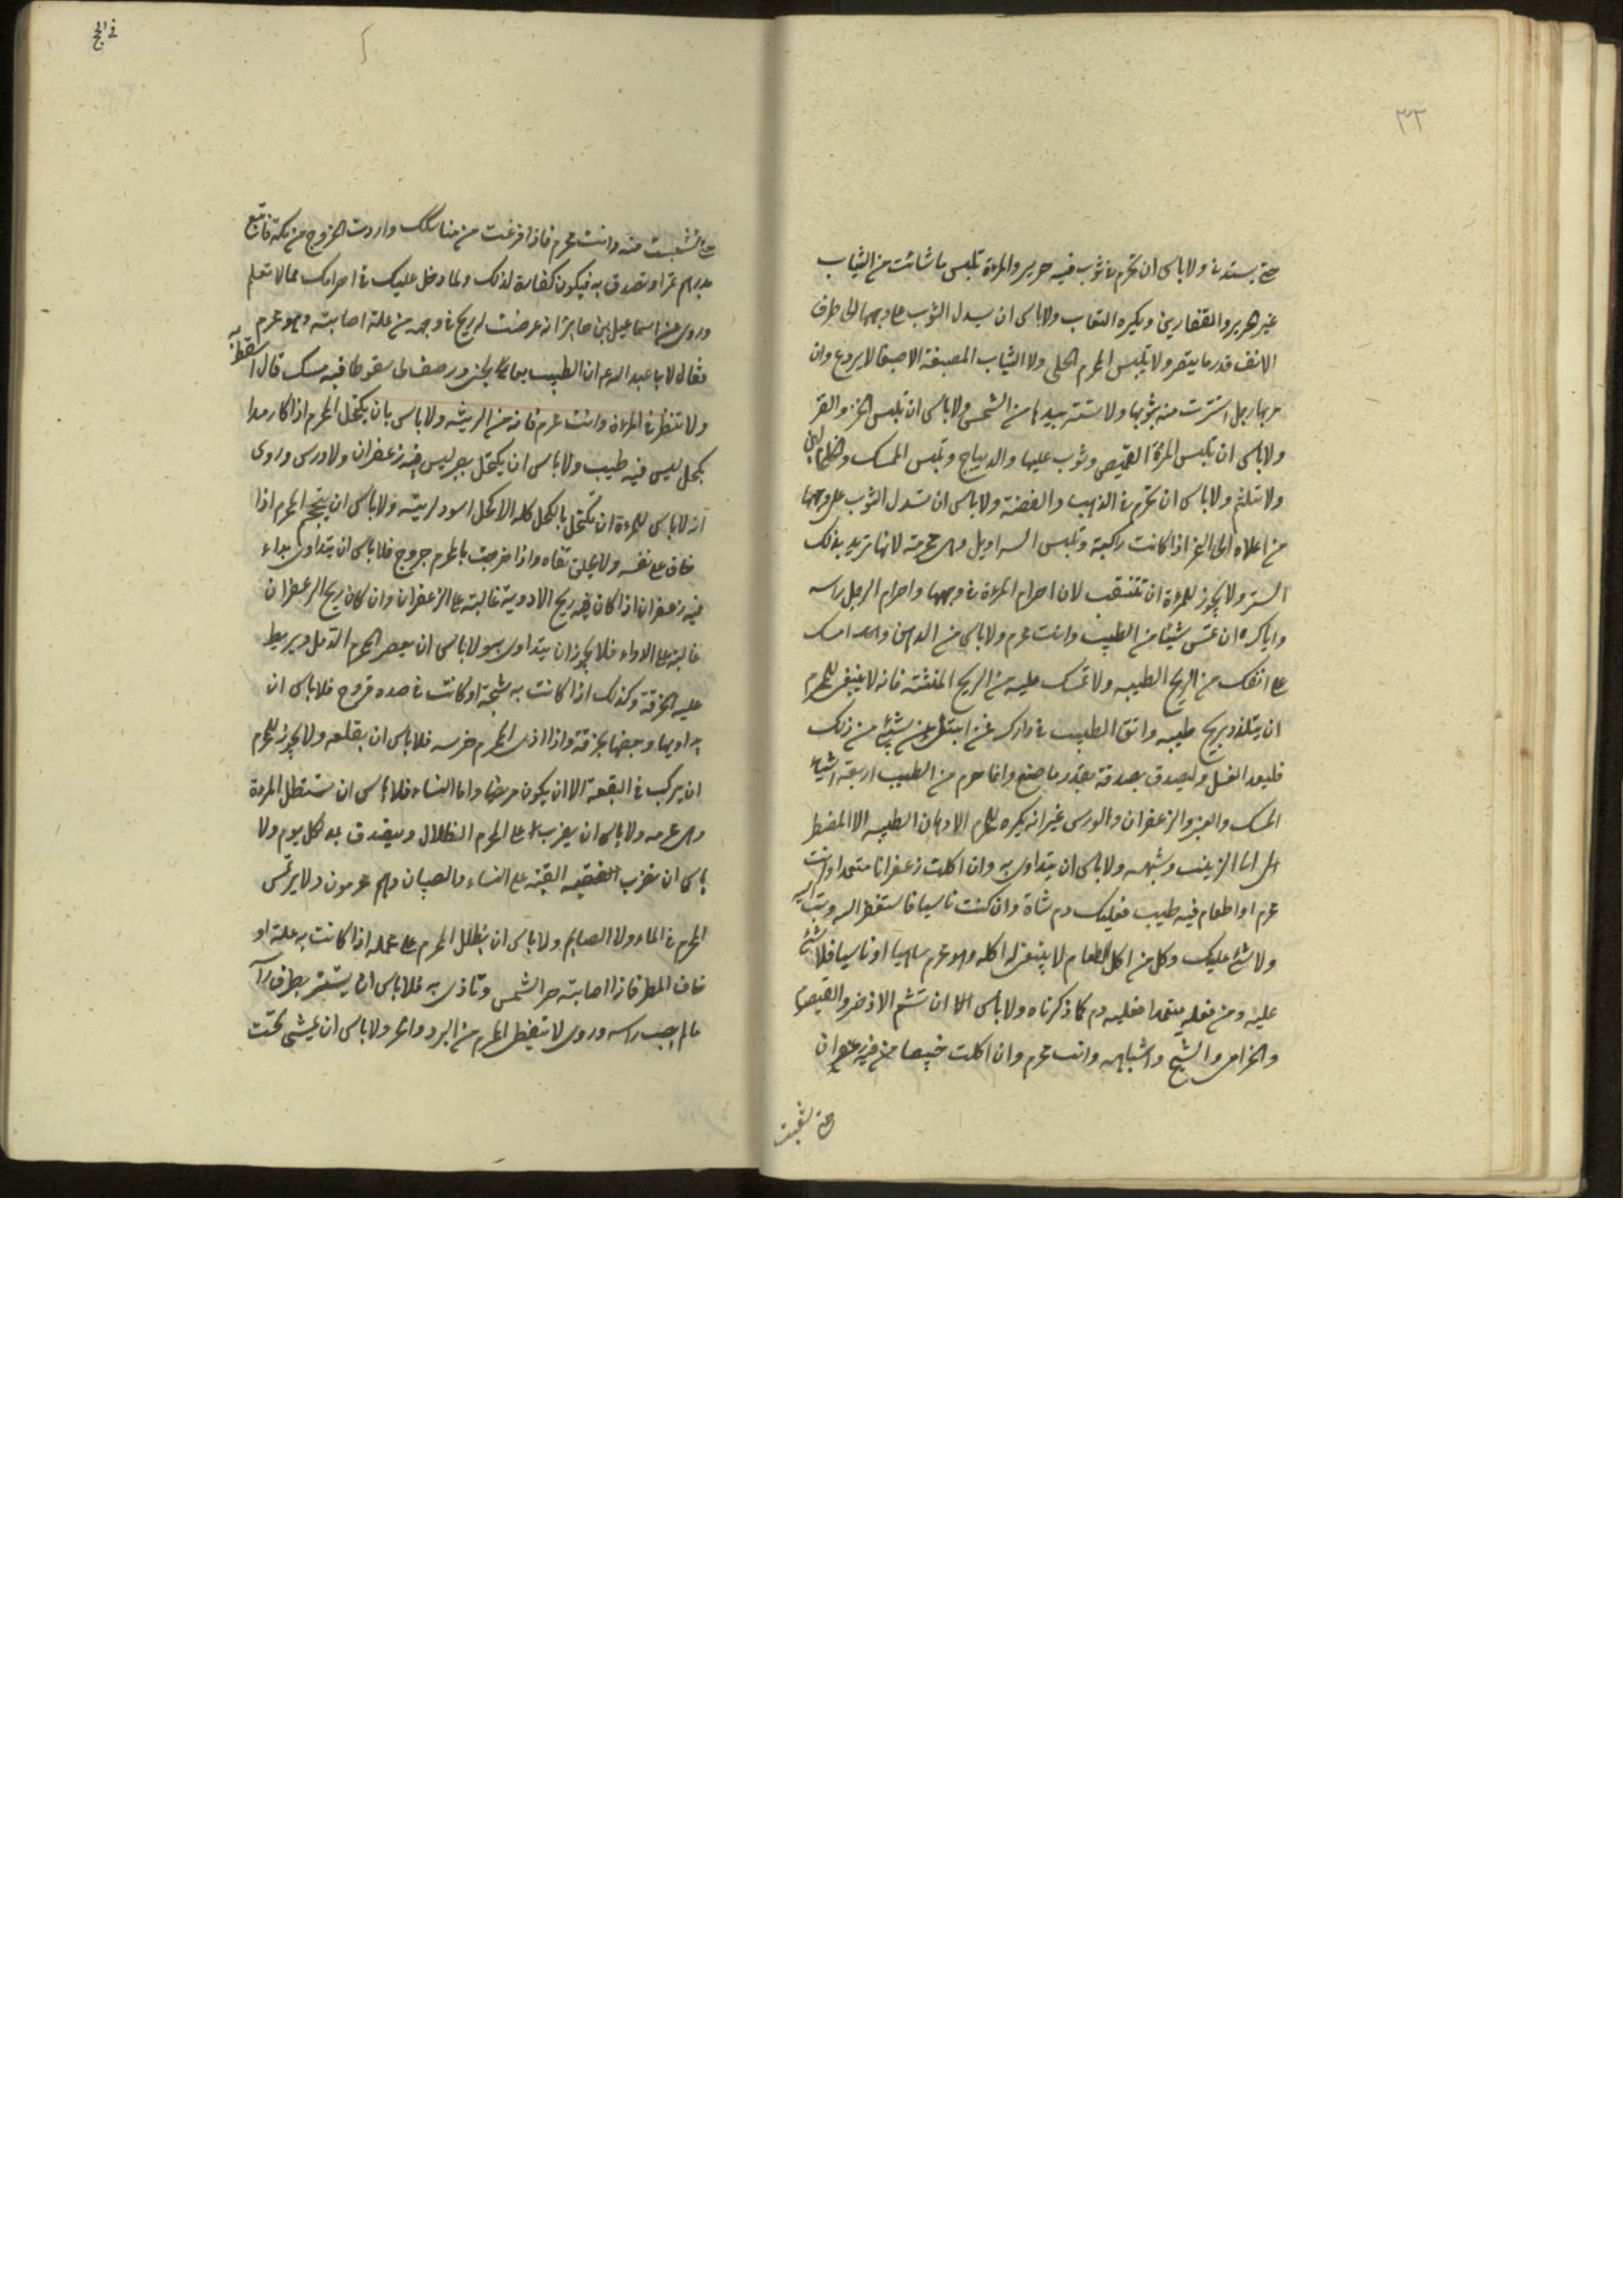 ٣٣
حتى يستدى ولا باس ان تحرم فى ثوب فيه حرير والمراة تلبس ما شائت من الثياب
غير الحرير والقفازين ويكره النقاب ولا باس ان يسدل الثوب على وجهها الى طرف
الانف قدر ما يبصر ولا يلبس المحرم الحلى ولا الثياب المصبغة الا صبغا لا يردع وان
مر بها رجل استترت منه بثوبها ولا تستتر بيدها من الشمس ولا باس ان تلبس الخز والقز
ولا باس ان تلبس المراة القميص وثوب عليها والديباج وتلبس المسك والخلخالين
ولا تتلثم ولا باس ان تحرم فى الذهب والفضة ولا باس ان تسدل الثوب على وجهها
من اعلاه الى النحر اذا كانت راكبة وتلبس السراويل وهى محرمة لانها تريد بذلك
الستر ولا يجوز للمراة ان تتنقب لان احرام المراة فى وجهها واحرام الرجل راسه
واياك ان تمس شيئا من الطيب وانت محرم ولا باس من الدهن وامسك
على انفك من الريح الطيبه ولا تمسك عليه من الريح المنتنة فانه لا ينبغى للمحرم
ان يتلذذ بريح طيبه واتق الطيب فى زادك فمن ابتلى بشيئ من ذلك
فليعد الغسل وليصدق بصدقة بقدر ما صنع وانما حرم من الطيب اربعة اشياء
المسك والعنبر والزعفران والورس غير انه يكره للمحرم الادهان الطيبه الا المضطر
الى الزينب وشبهه ولا باس ان يتداوى به وان اكلت زعفرانا متعمدا وانت
محرم او اطعام فيه طيب فعليك دم شاة وان كنت ناسيا فاستغفر الله وتب اليه
ولا شئ عليك وكل من اكل طعام لا ينبغى له اكله وهو محرم ساهيا او ناسيا فلا شئ
عليه ومن فعله متعمدا فعليه دم كما ذكرناه ولا باس ان تشم الاذخر والقيصوم
والخزامى والشيح واشباهه وانت محرم وان اكلت خبيصا فيه زعفران
حتى شبعت
فى الحج
حتى شبعت منه وانت محرم فاذا فرغت من مناسكك واردت الخروج من مكة فابتع
بدرهم تمرا وتصدق به فيكون كفارة لذلك ولما دخل عليك فى احرامك مما لا تعلم
وروى عن اسماعيل بن جابر انه عرضت له ريح فى وجهه من علة اصابته وهو محرم
فقال لابى عبد الله ع ان الطبيب يعالجنى وصف لى سقوطا فيه مسك قال اسقط به
ولا تنظر فى المراة وانت محرم فانه من الزينه ولا باس بان يكتحل المحرم اذا كان رمدا
بكحل ليس فيه طيب ولا باس ان يكتحل بصبر ليس فيه زعفران ولا ورس وروى
انه لا باس للمراة ان تكتحل بالكحل كله الا كحل اسود لزينة ولا باس ان يحتجم المحرم اذا
خاف على نفسه ولا يحلق قفاه واذا خرجت بالمحرم جروح فلا باس ان يتداوى بدواء
فيه زعفران اذا كان فيه ريح الادوية غالبة على الزعفران وان كان ريح الزعفران
غالبة على الدواء فلا يجوز ان يتداوى به ولا باس ان يعصر المحرم الدمل ويربط
عليه الخرقة وكذلك اذا كانت به شجة او كانت فى جسده قروح فلا باس ان
يداويها ويعصبها بخرقة واذا اذى المحرم ضرسه فلا باس ان يقلعه ولا يجوز للمحرم
ان يركب فى القبة الا ان يكون مريضا واما النساء فلا باس ان تستظل المراة
وهى محرمه ولا باس ان يضرب على المحرم الظلال ويتصدق بمد لكل يوم ولا
باس ان تضرب القبه على النساء والصبيان وهم محرمون ولا يرتمس
المحرم فى الماء ولا الصايم ولا باس ان يظلل المحرم على محمله اذا كانت به علة او
خاف المطر فاذا اصابته حر الشمس وتاذى به فلا باس ان يستتر بطرف
ما لم يصب راسه وروى لا تغطى المحرم من البرد والحر ولا باس ان يمشى تحت